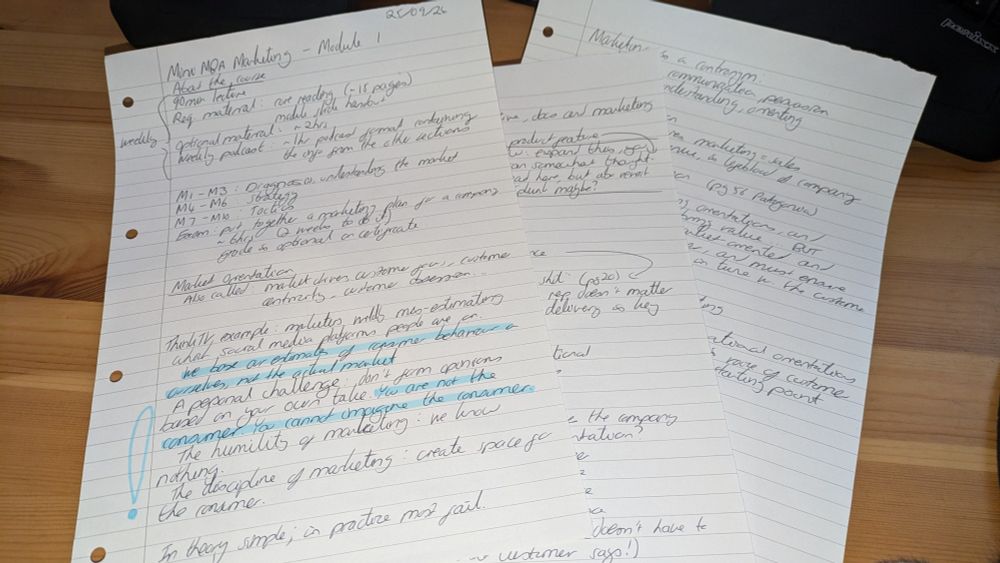 25/09/26
Mini MBA Marketing - Module 1
About the course
90min lecture
Req. material: core reading (~15 pages)
module slide handout
Optional material: ~2hrs
Weekly podcast: ~1hr podcast format containing
the info from the other sections
weekly
M1-M3: Diagnosis, understanding the market
M4-M6: Strategy
M7-M10: Tactics
Exam: put together a marketing plan for a company
~6hrs (2 weeks to do it)
grade is optional on certificate
Market Orientation
Also called: market driven, customer focus, customer
centricity, customer obsession...
ThinkTV example: marketers wildly mis-estimating
what social media platforms people are on.
We base our estimates of consumer behaviour on
ourselves, not the actual market
A personal challenge: don't form opinions
based on your own take. You are not the
consumer. You cannot imagine the consumer.
The humility of marketing: we know
nothing.
The discipline of marketing: create space for
the consumer.
In theory simple; in practice most fail.
docs and marketing
product feature
expand this,
somewhat thought
here, but
maybe?
shit: (pg20)
rep doesn't matter
delivery is key
the company
orientation?
doesn't have to
customer says!)
is a contronym:
communication, persuasion
understanding, orienting
marketing = sales
is lifeblood of company
(pg 56
orientations, an
value. BUT
market oriented and
and must ensure
in tune w. the customer
orientations
of customer
starting point